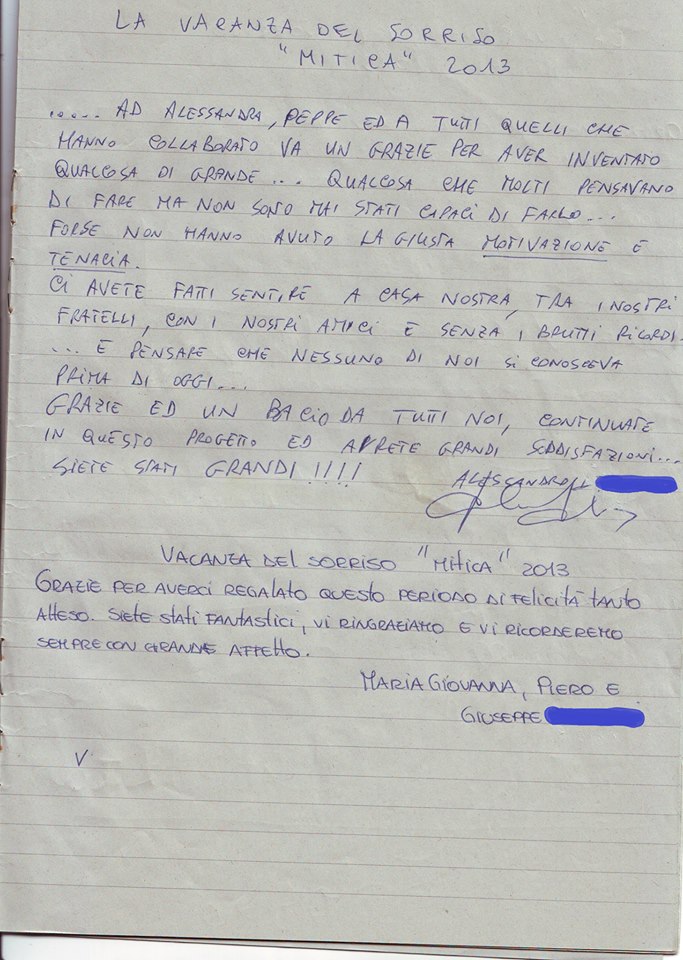 LA VACANZA DEL SORRISO
"MITICA" 2013
..... AD ALESSANDRA, PEPPE ED A TUTTI QUELLI CHE
HANNO COLLABORATO VA UN GRAZIE PER AVER INVENTATO
QUALCOSA DI GRANDE... QUALCOSA CHE MOLTI PENSAVANO
DI FARE MA NON SONO MAI STATI CAPACI DI FARLO...
FORSE NON HANNO AVUTO LA GIUSTA MOTIVAZIONE E
TENACIA.
CI AVETE FATTI SENTIRE A CASA NOSTRA, TRA I NOSTRI
FRATELLI, CON I NOSTRI AMICI E SENZA I BRUTTI RICORDI.
... E PENSARE CHE NESSUNO DI NOI SI CONOSCEVA
PRIMA DI OGGI...
GRAZIE ED UN BACIO DA TUTTI NOI, CONTINUATE
IN QUESTO PROGETTO ED AVRETE GRANDI SODDISFAZIONI...
SIETE STATI GRANDI!!!!
ALESSANDRO
VACANZA DEL SORRISO "MITICA" 2013
GRAZIE PER AVERCI REGALATO QUESTO PERIODO DI FELICITÀ TANTO
ATTESO. SIETE STATI FANTASTICI, VI RINGRAZIAMO E VI RICORDEREMO
SEMPRE CON GRANDE AFFETTO.
MARIA GIOVANNA, PIERO E
GIUSEPPE
V